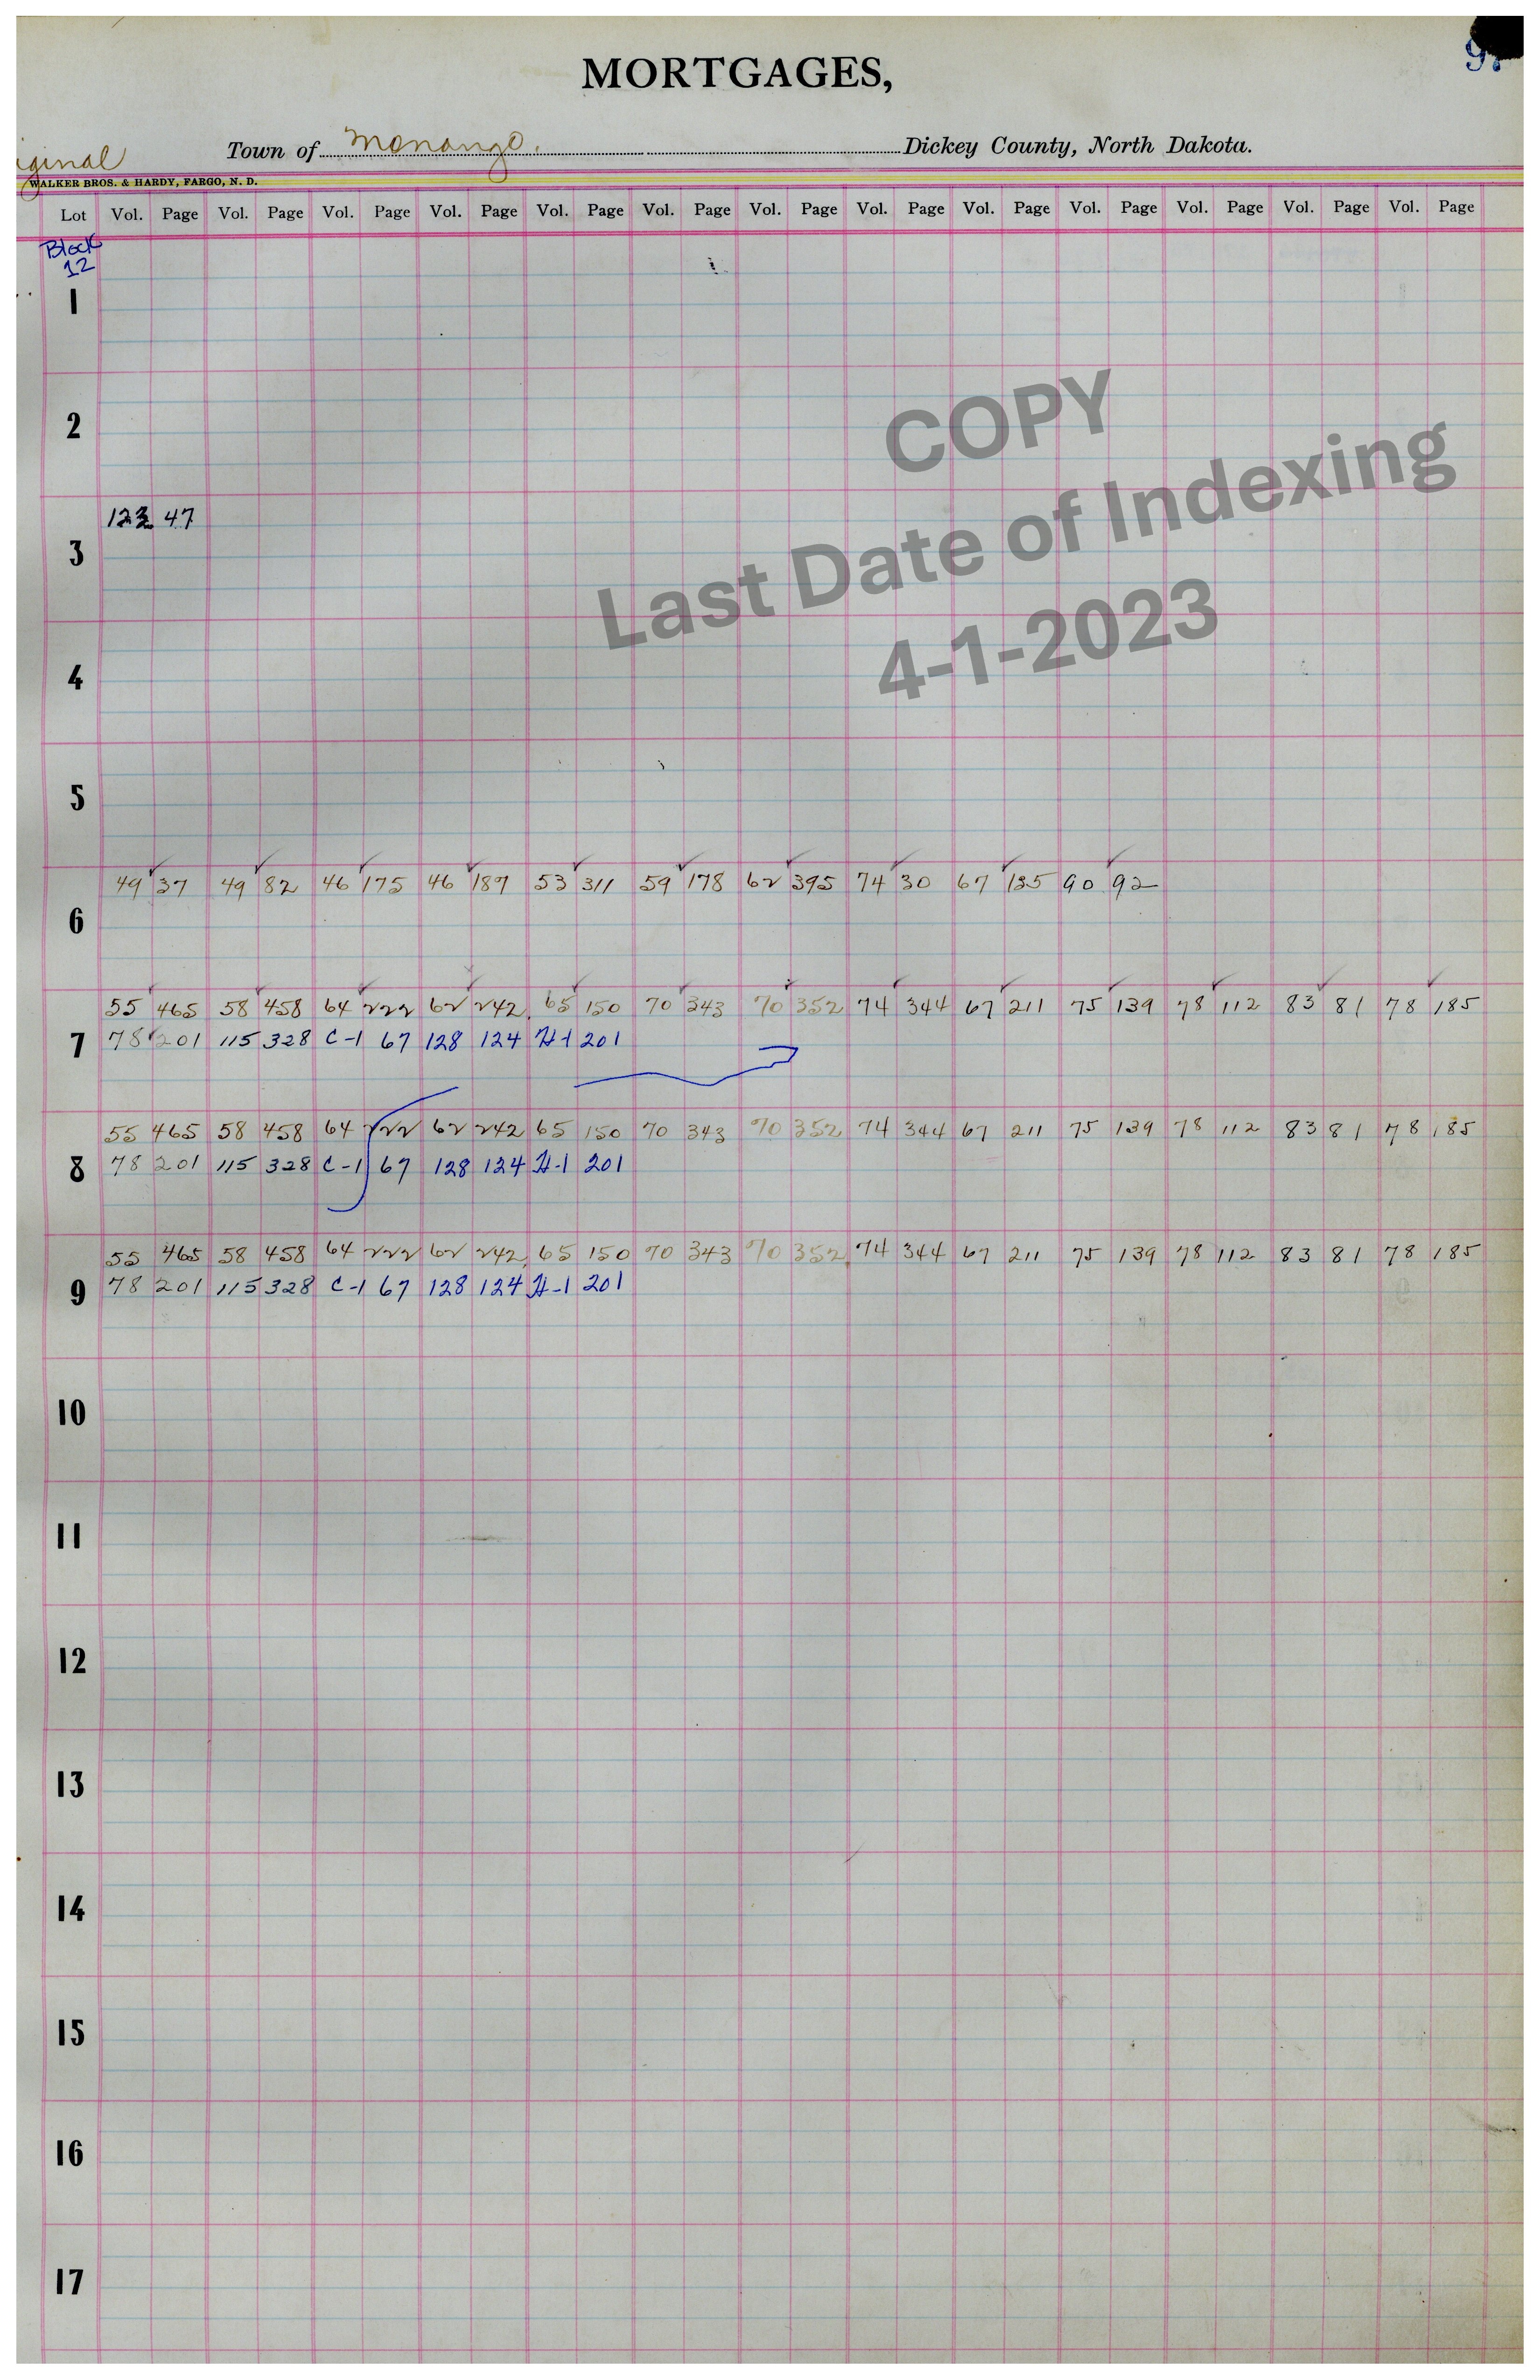 MORTGAGES,
iginal Town of Monango. Dickey County, North Dakota.
WALKER BROS. & HARDY, FARGO, N. D.
Lot Vol. Page Vol. Page Vol. Page Vol. Page Vol. Page Vol. Page Vol. Page Vol. Page Vol. Page Vol. Page Vol. Page Vol. Page Vol. Page
Block
12
1
2
123 47
3
4
5
49 37 49 82 46 175 46 187 53 311 59 178 62 395 74 30 67 135 90 92
6
55 465 58 458 64 222 62 242 65 150 70 343 70 352 74 344 67 211 75 139 78 112 83 81 78 185
7 78 201 115 328 C-1 67 128 124 H-1 201
55 465 58 458 64 222 62 242 65 150 70 343 70 352 74 344 67 211 75 139 78 112 83 81 78 185
8 78 201 115 328 C-1 67 128 124 H-1 201
55 465 58 458 64 222 62 242 65 150 70 343 70 352 74 344 67 211 75 139 78 112 83 81 78 185
9 78 201 115 328 C-1 67 128 124 H-1 201
10
11
12
13
14
15
16
17
COPY
Last Date of Indexing
4-1-2023